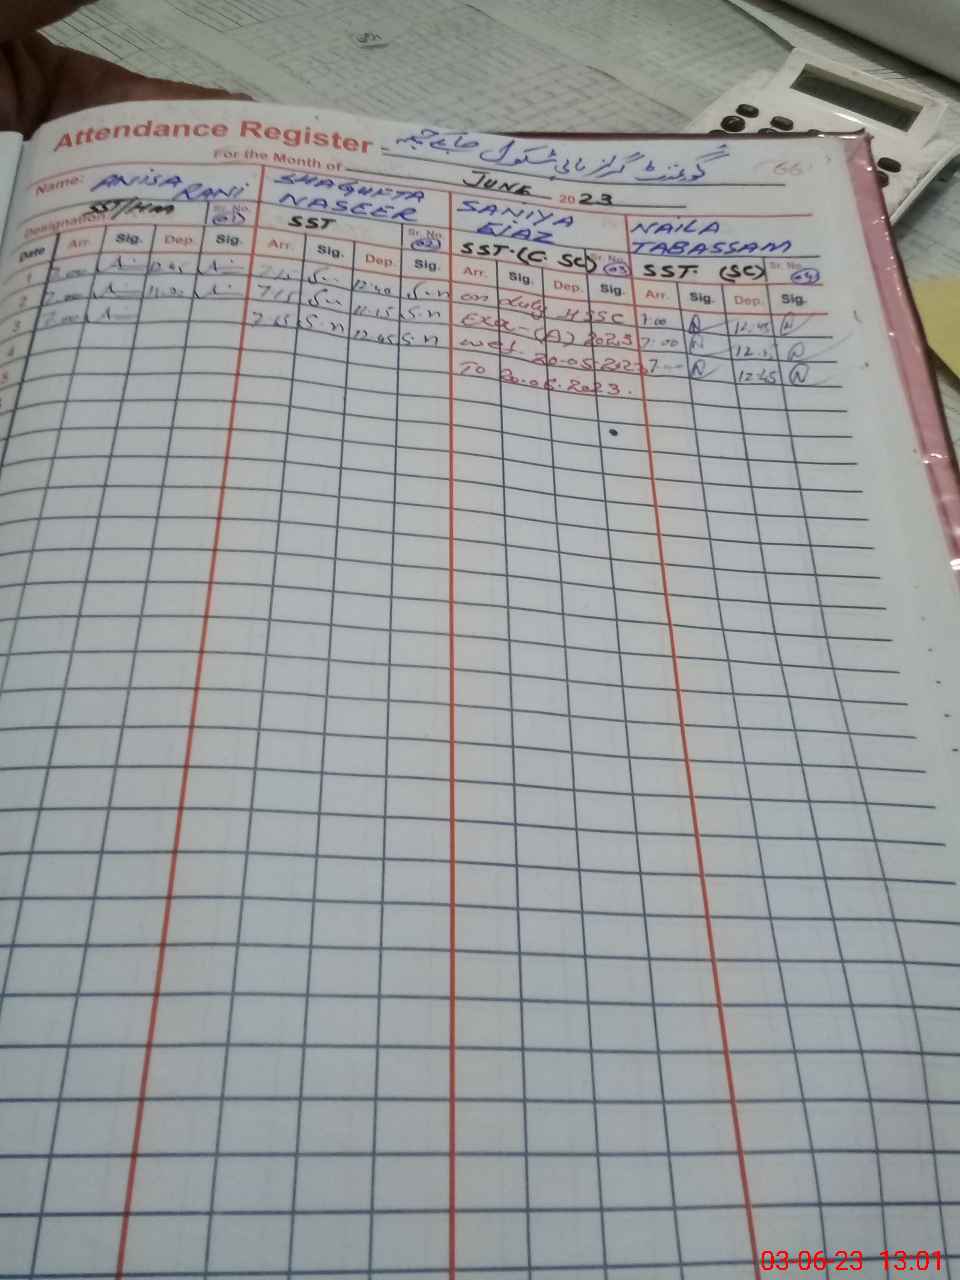 Attendance Register گورنمنٹ گرلز ہائی سکول
For the Month of JUNE 2023
Name: ANISA RANI SHAGUFTA NASEER SANIYA EJAZ NAILA TABASSAM
Designation: SST/HM Sr. No. 01 SST Sr. No. 02 SST.(C.SC) Sr. No. 03 SST (SC) Sr. No. 04
Date Arr. Sig. Dep. Sig. Arr. Sig. Dep. Sig. Arr. Sig. Dep. Sig. Arr. Sig. Dep. Sig.
1 7:00 12:40 S.n on duty HSSC 7:00 12:45
2 7:00 7:15 12:15 S.n Exa-(A) 2023 7:00
3 7:00 S.n 12:45 S.n w.e.f. 30.05.2023 12:45
4 To 20.06.2023.
5
03-06-23 13.01